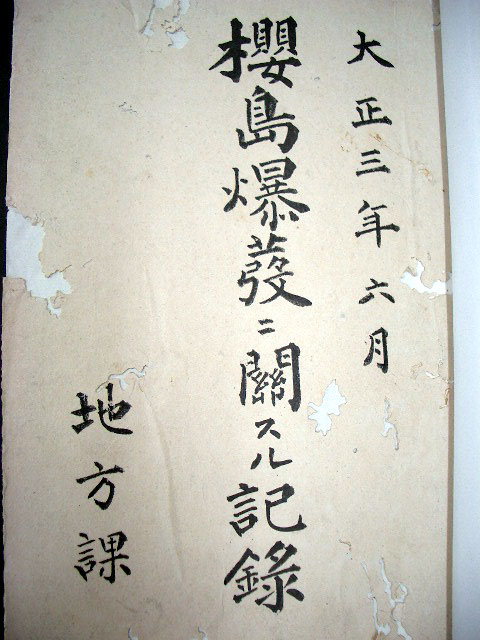 大正三年六月
櫻島爆發ニ關スル記錄
地方課